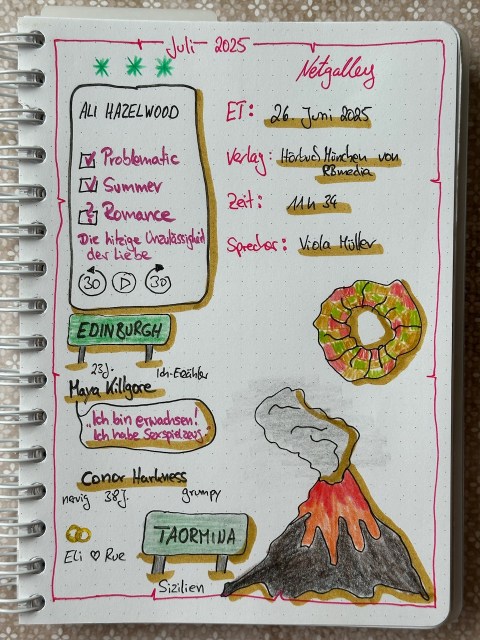 Juli 2025
Netgalley
ALI HAZELWOOD
Problematic
Summer
Romance
Die hitzige Unzulässigkeit
der Liebe
30 30
ET: 26. Juni 2025
Verlag: Hörbuch München von
RBmedia
Zeit: 11h 34
Sprecher: Viola Müller
EDINBURGH
23J. Ich-Erzähler
Maya Killgore
"Ich bin erwachsen!
Ich habe Sexspielzeug."
Conor Harkness
nervig 38J. grumpy
Eli ♡ Rue
TAORMINA
Sizilien